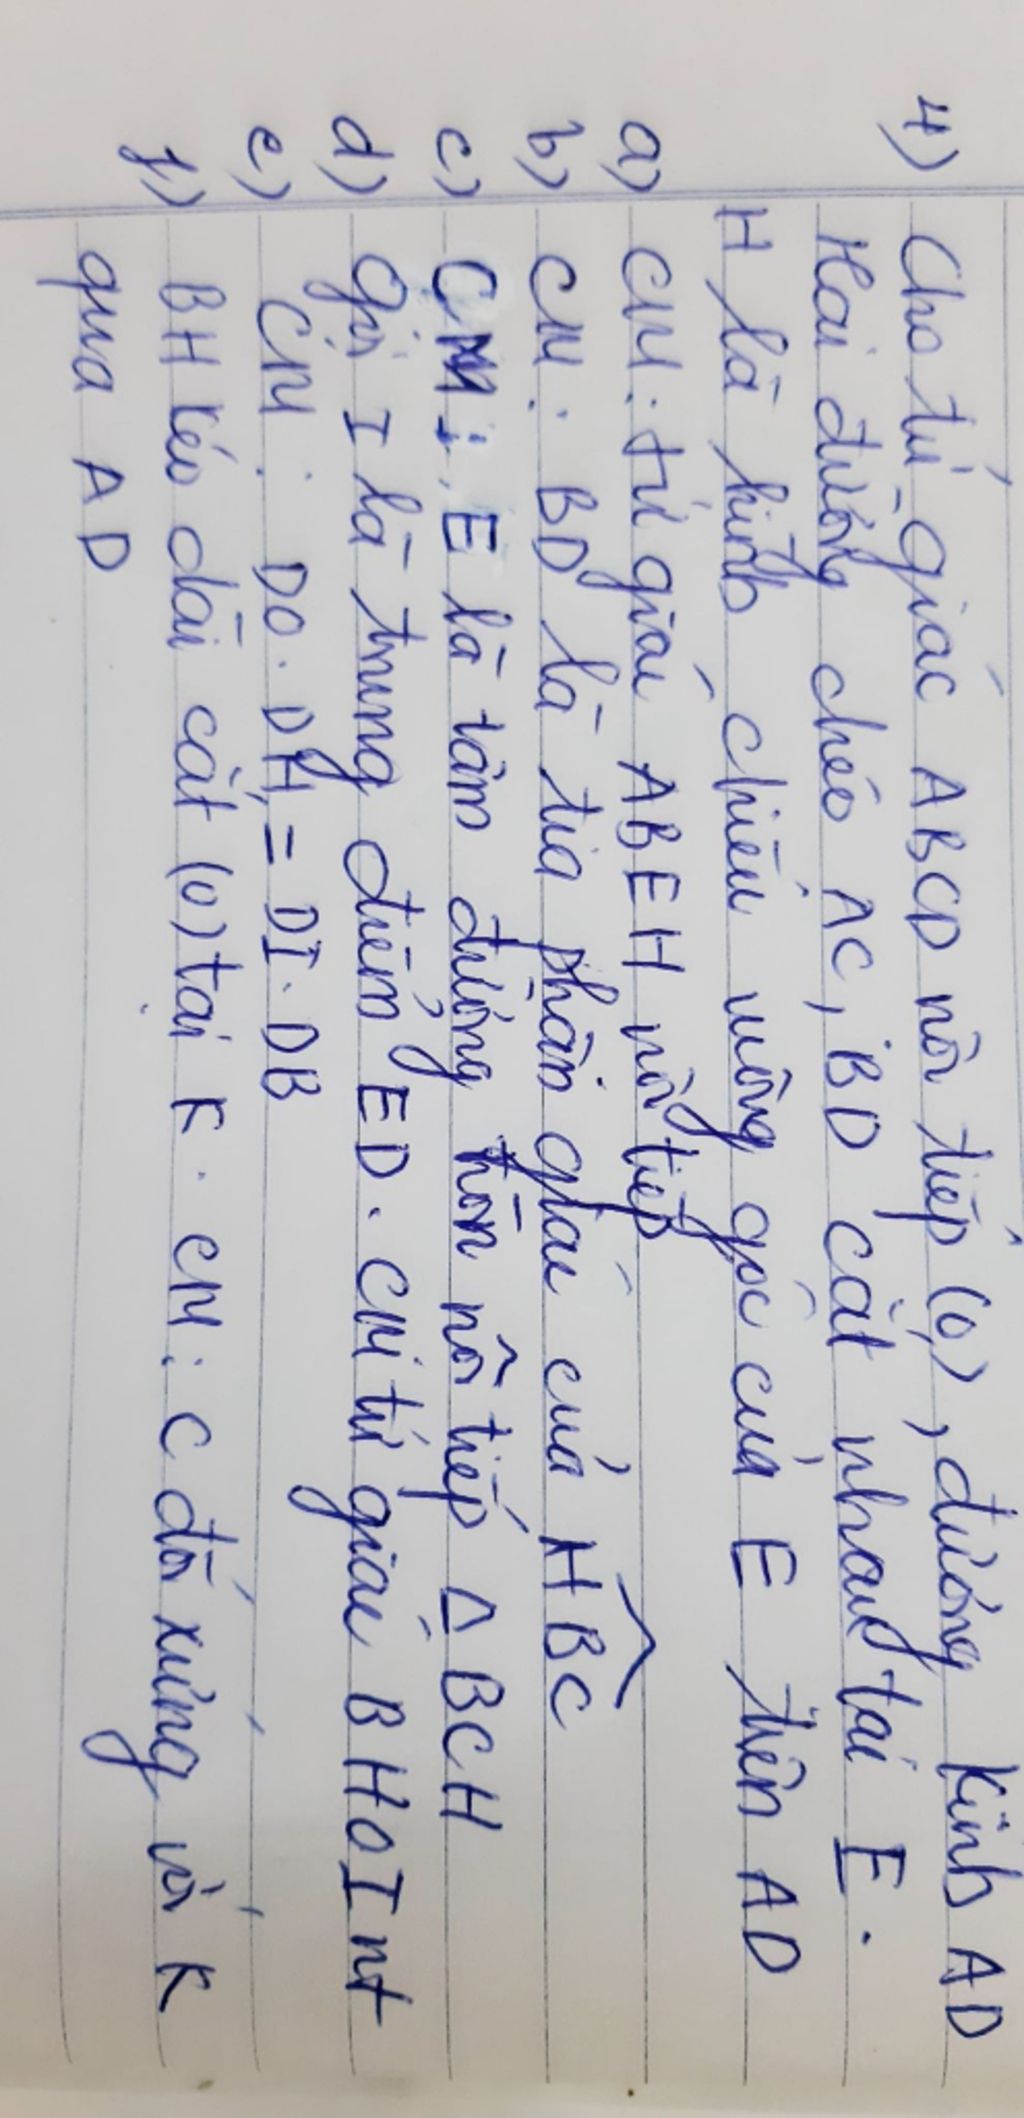 4) Cho tứ giác ABCD nội tiếp (O), đường kính AD
Hai đường chéo AC, BD cắt nhau tại E.
H là hình chiếu vuông góc của E trên AD
a) CM: tứ giác ABEH nội tiếp
b) CM: BD là tia phân giác của HBC
c) CM: E là tâm đường tròn nội tiếp Δ BCH
d) Gọi I là trung điểm ED. CM tứ giác BHOI nt
e) CM: DO.DH = DI.DB
f) BH kéo dài cắt (O) tại K. CM: C đối xứng với K
qua AD